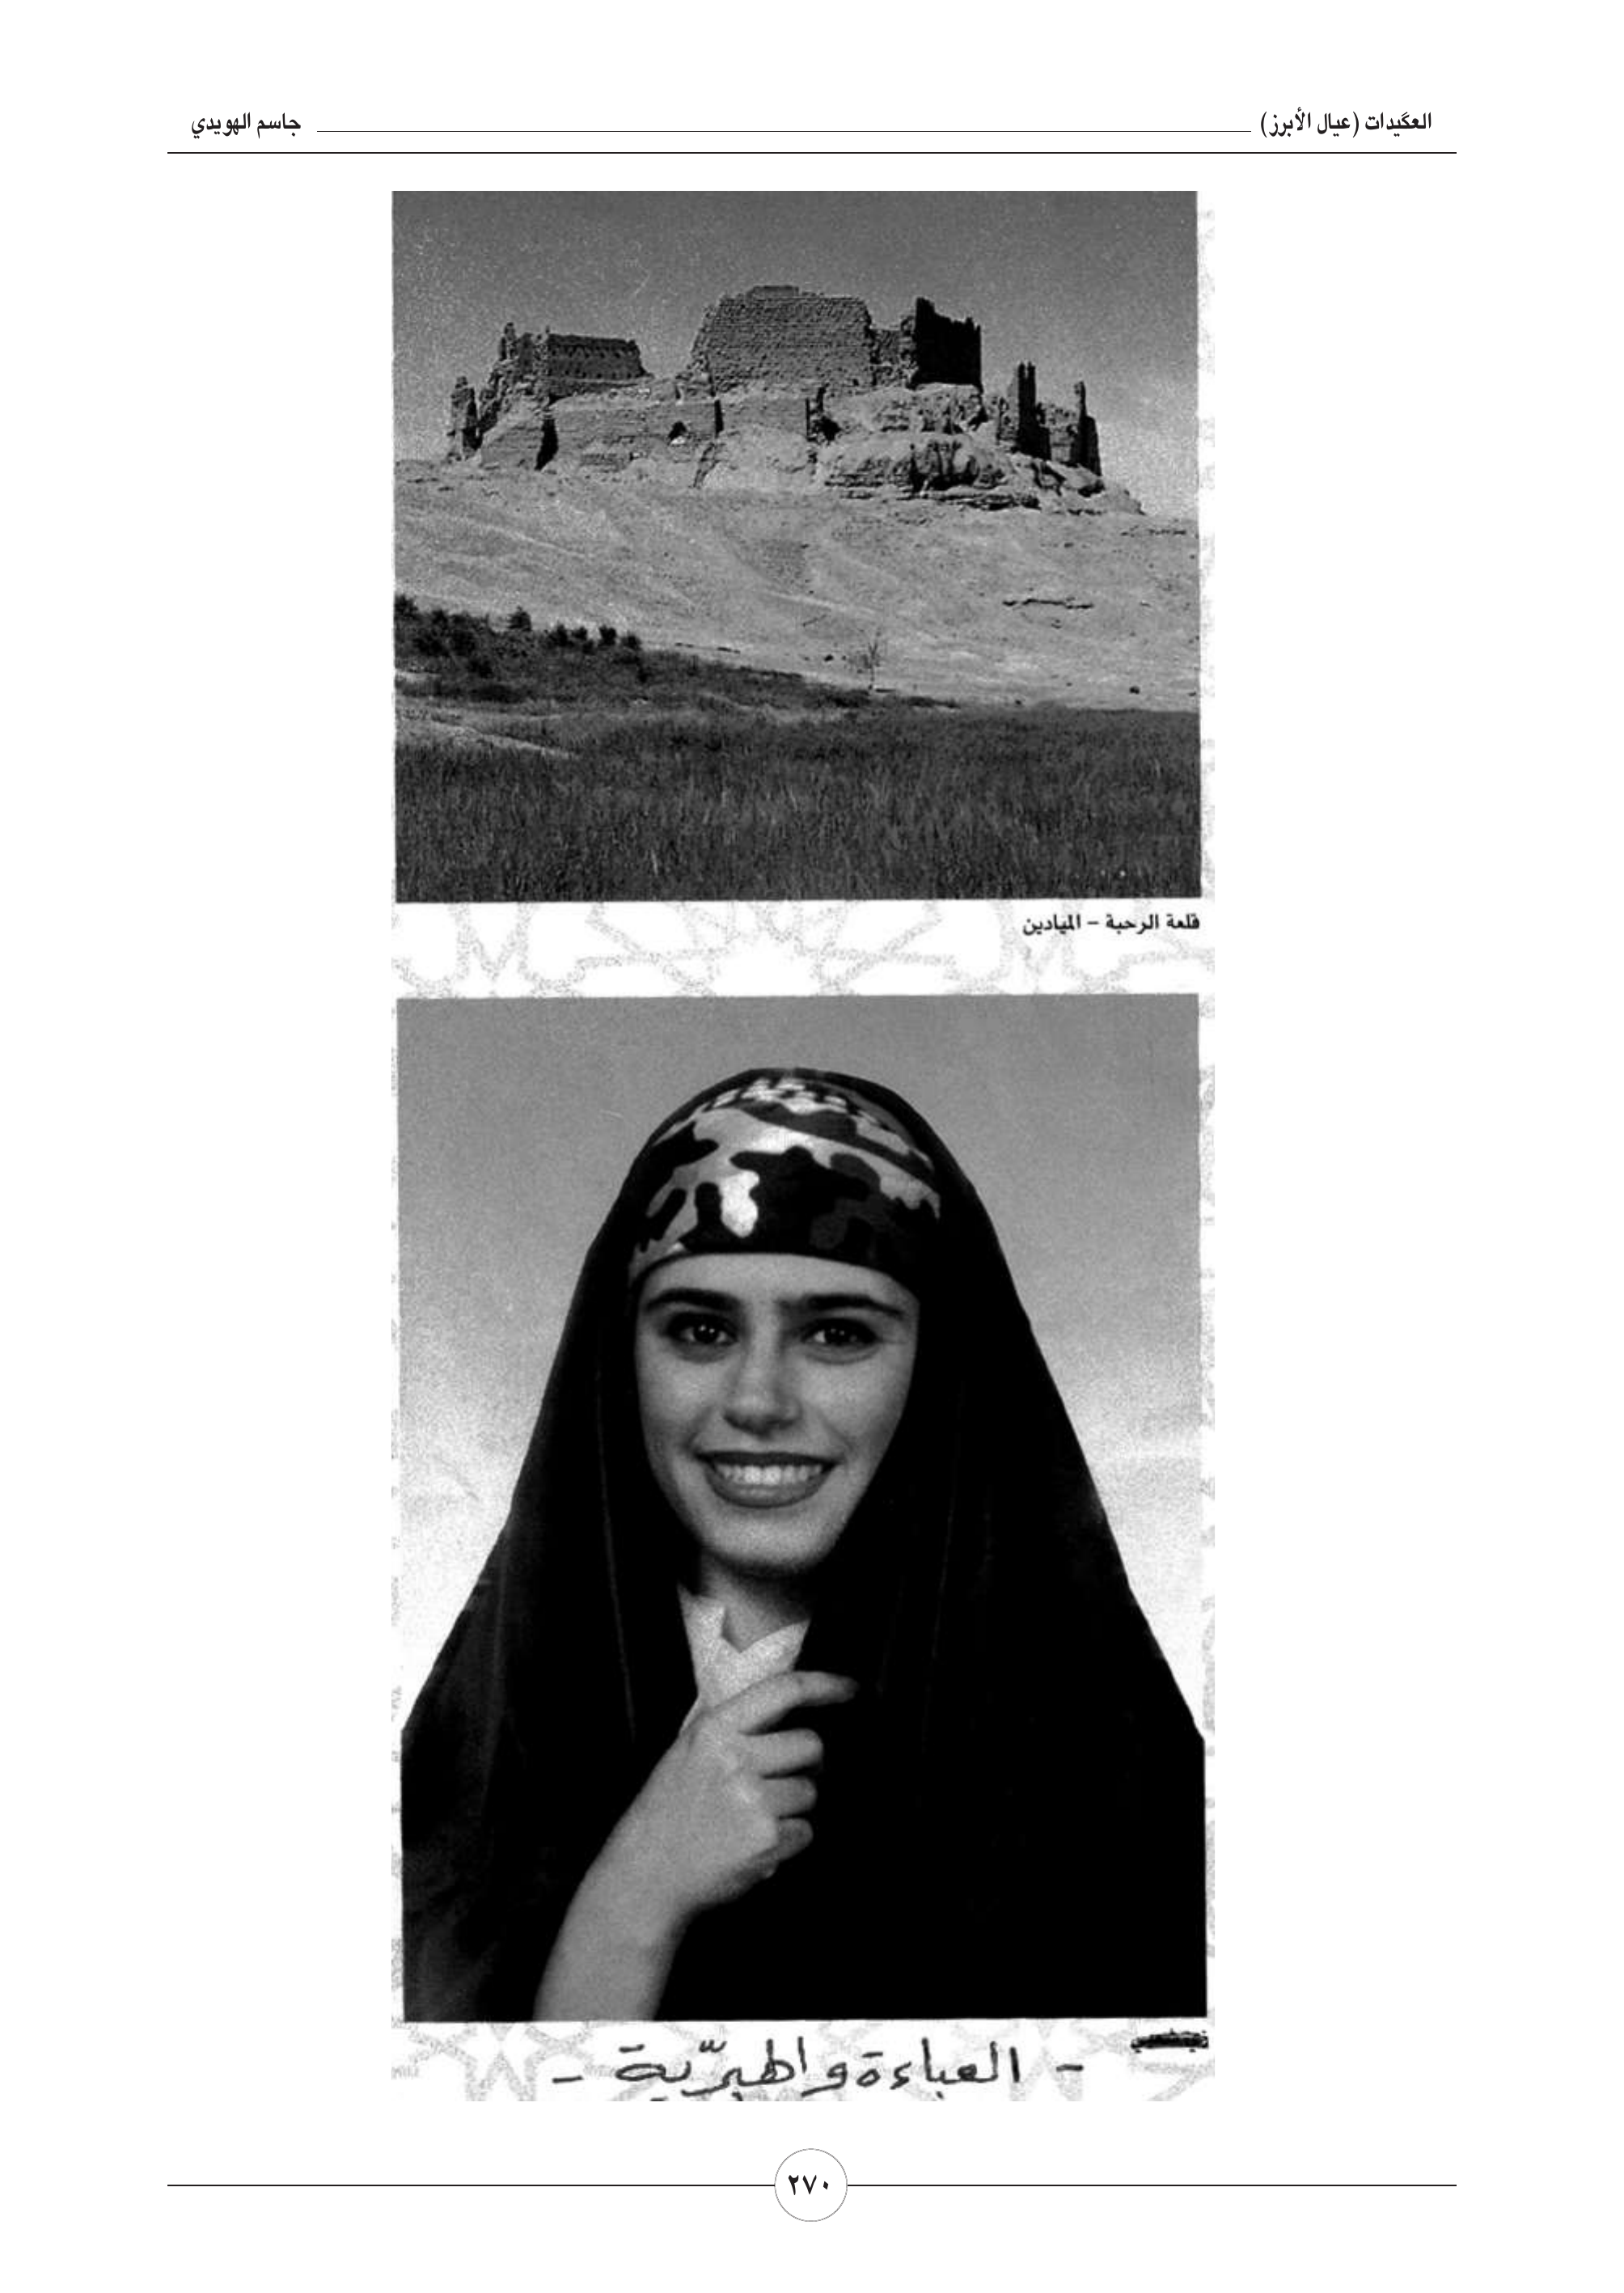 العگيدات (عيال الأبرز) جاسم الهويدي
قلعة الرحبة - الميادين
- العباءة والهبرّية -
٢٧٠